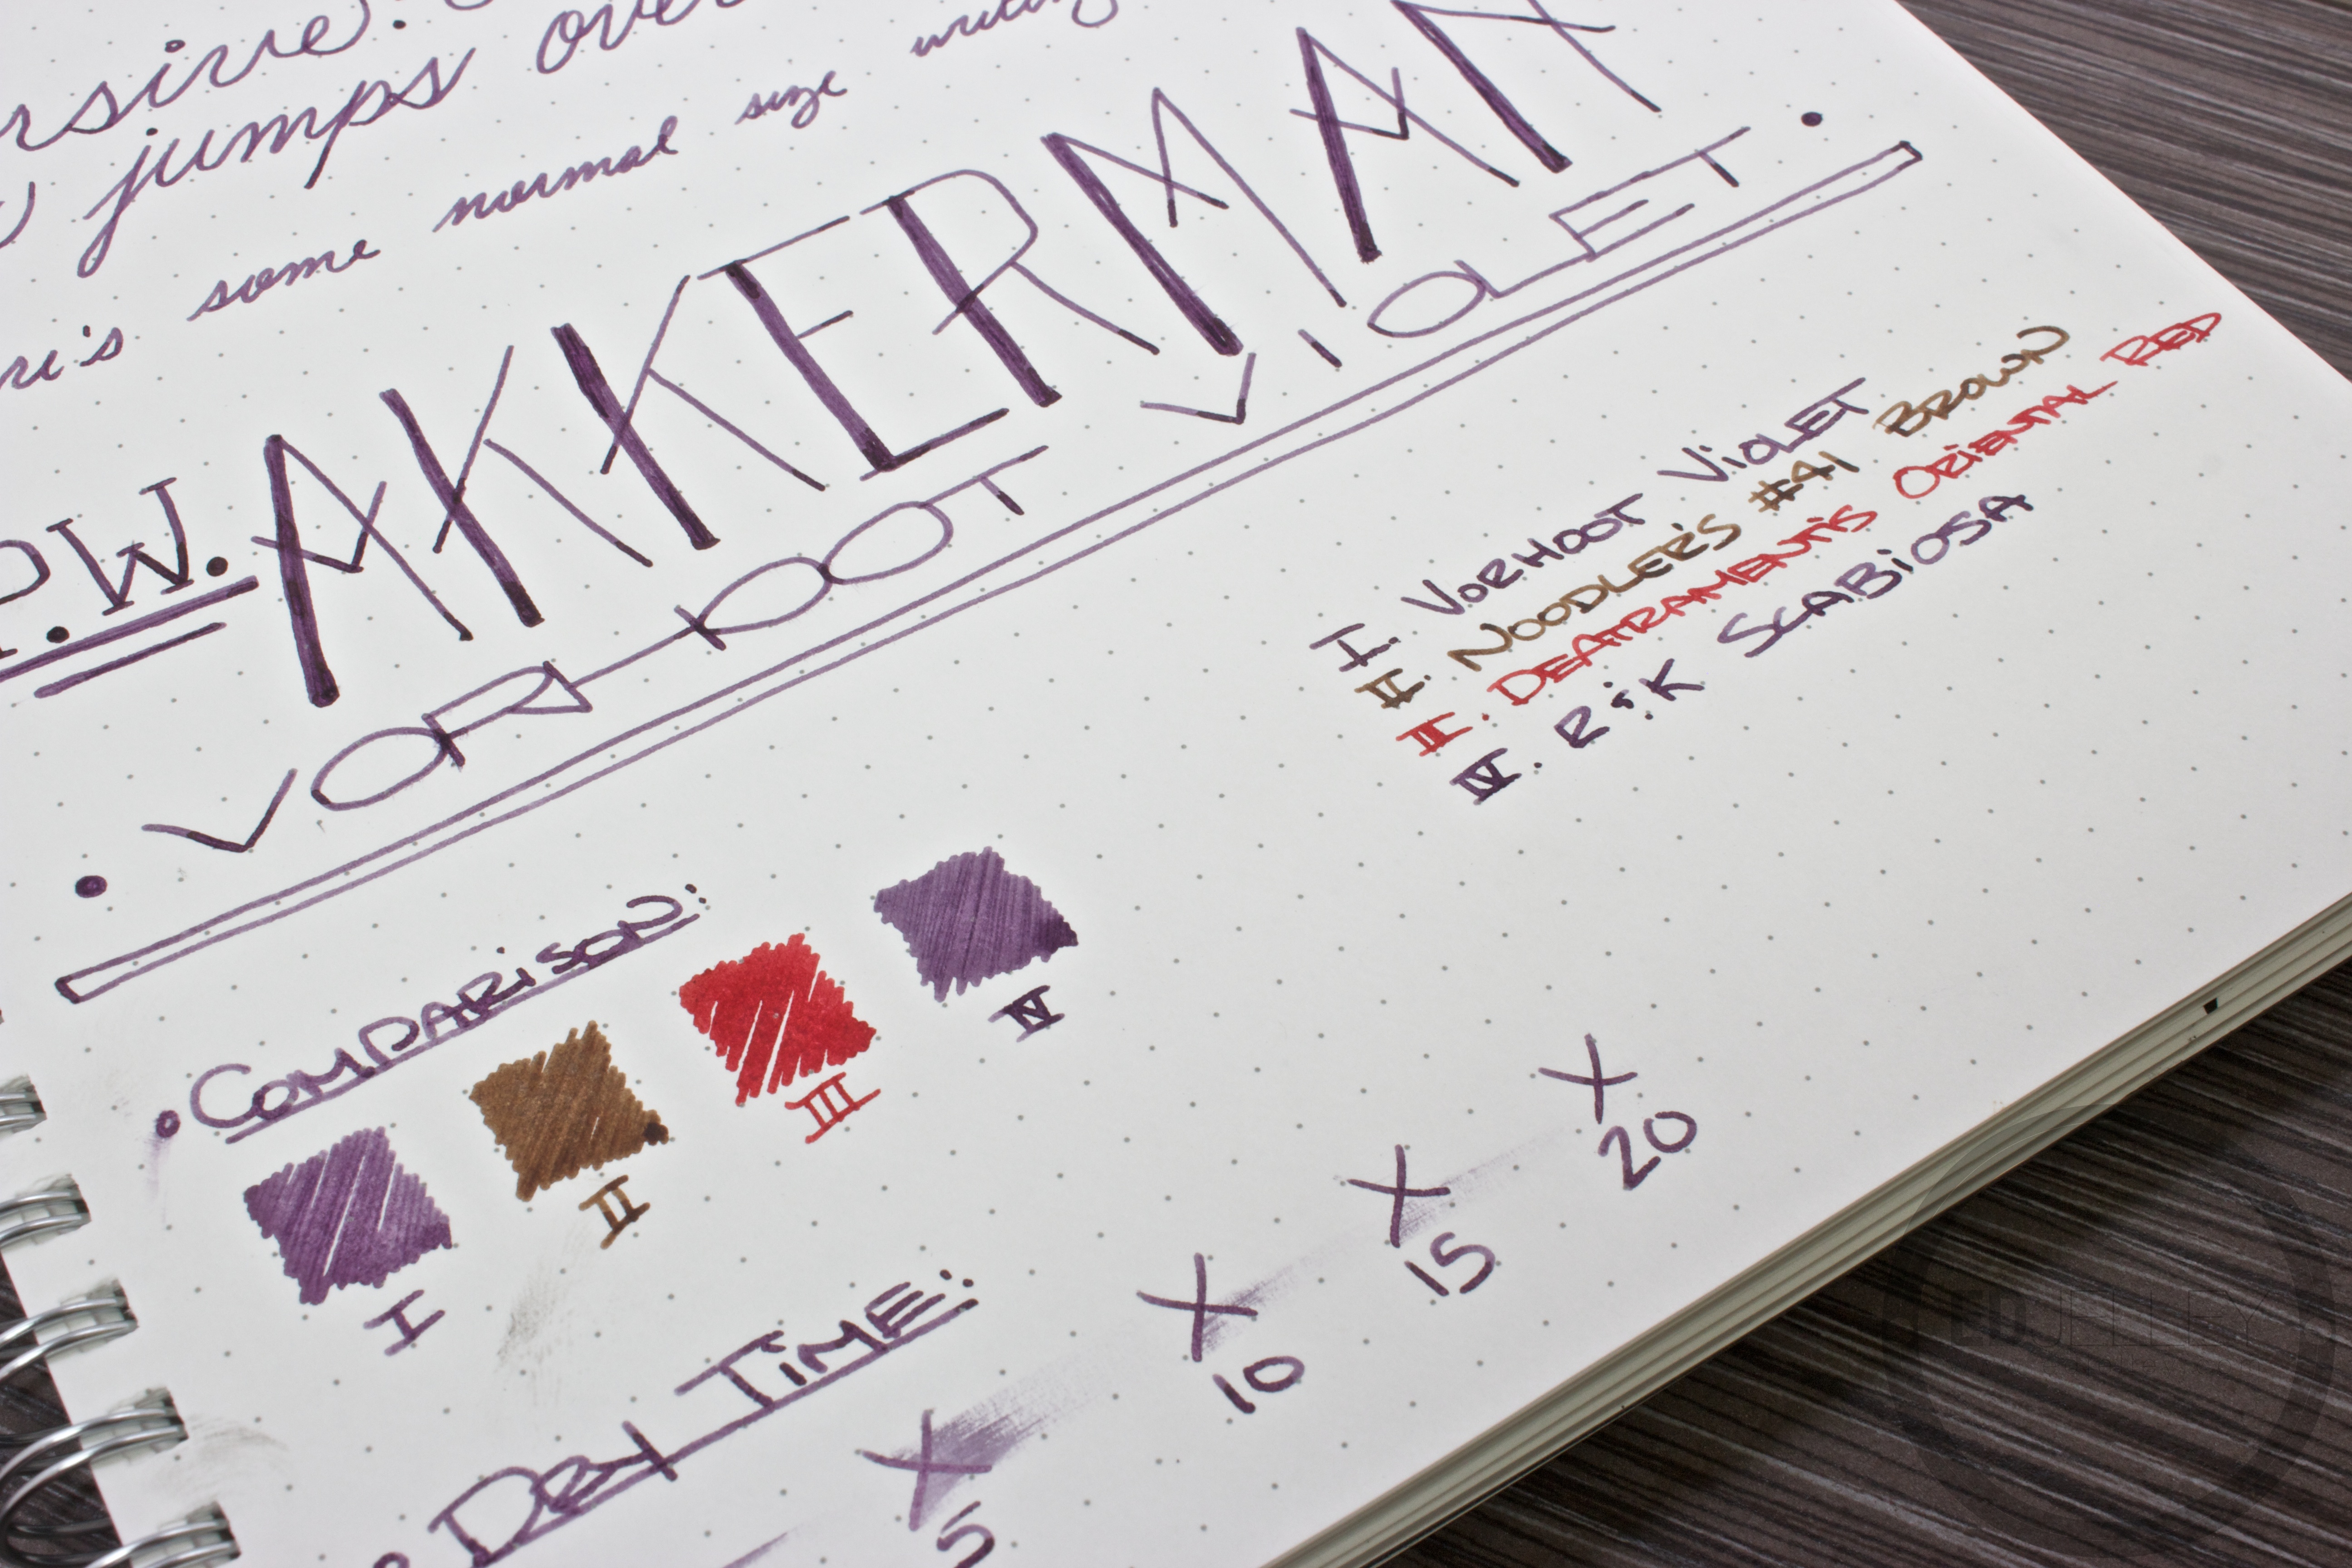 jumps over
some normal size writing
P.W. AKKERMAN
VORHOOT VIOLET
I. VORHOOT VIOLET
II. NOODLER'S #41 BROWN
II. DEATRAMENTIS ORIENTAL RED
IV. R:K SCABIOSA
COMPARISON:
I II III IV
DRY TIME:
5 X 10 X 15 X 20 X
EDJELLEY